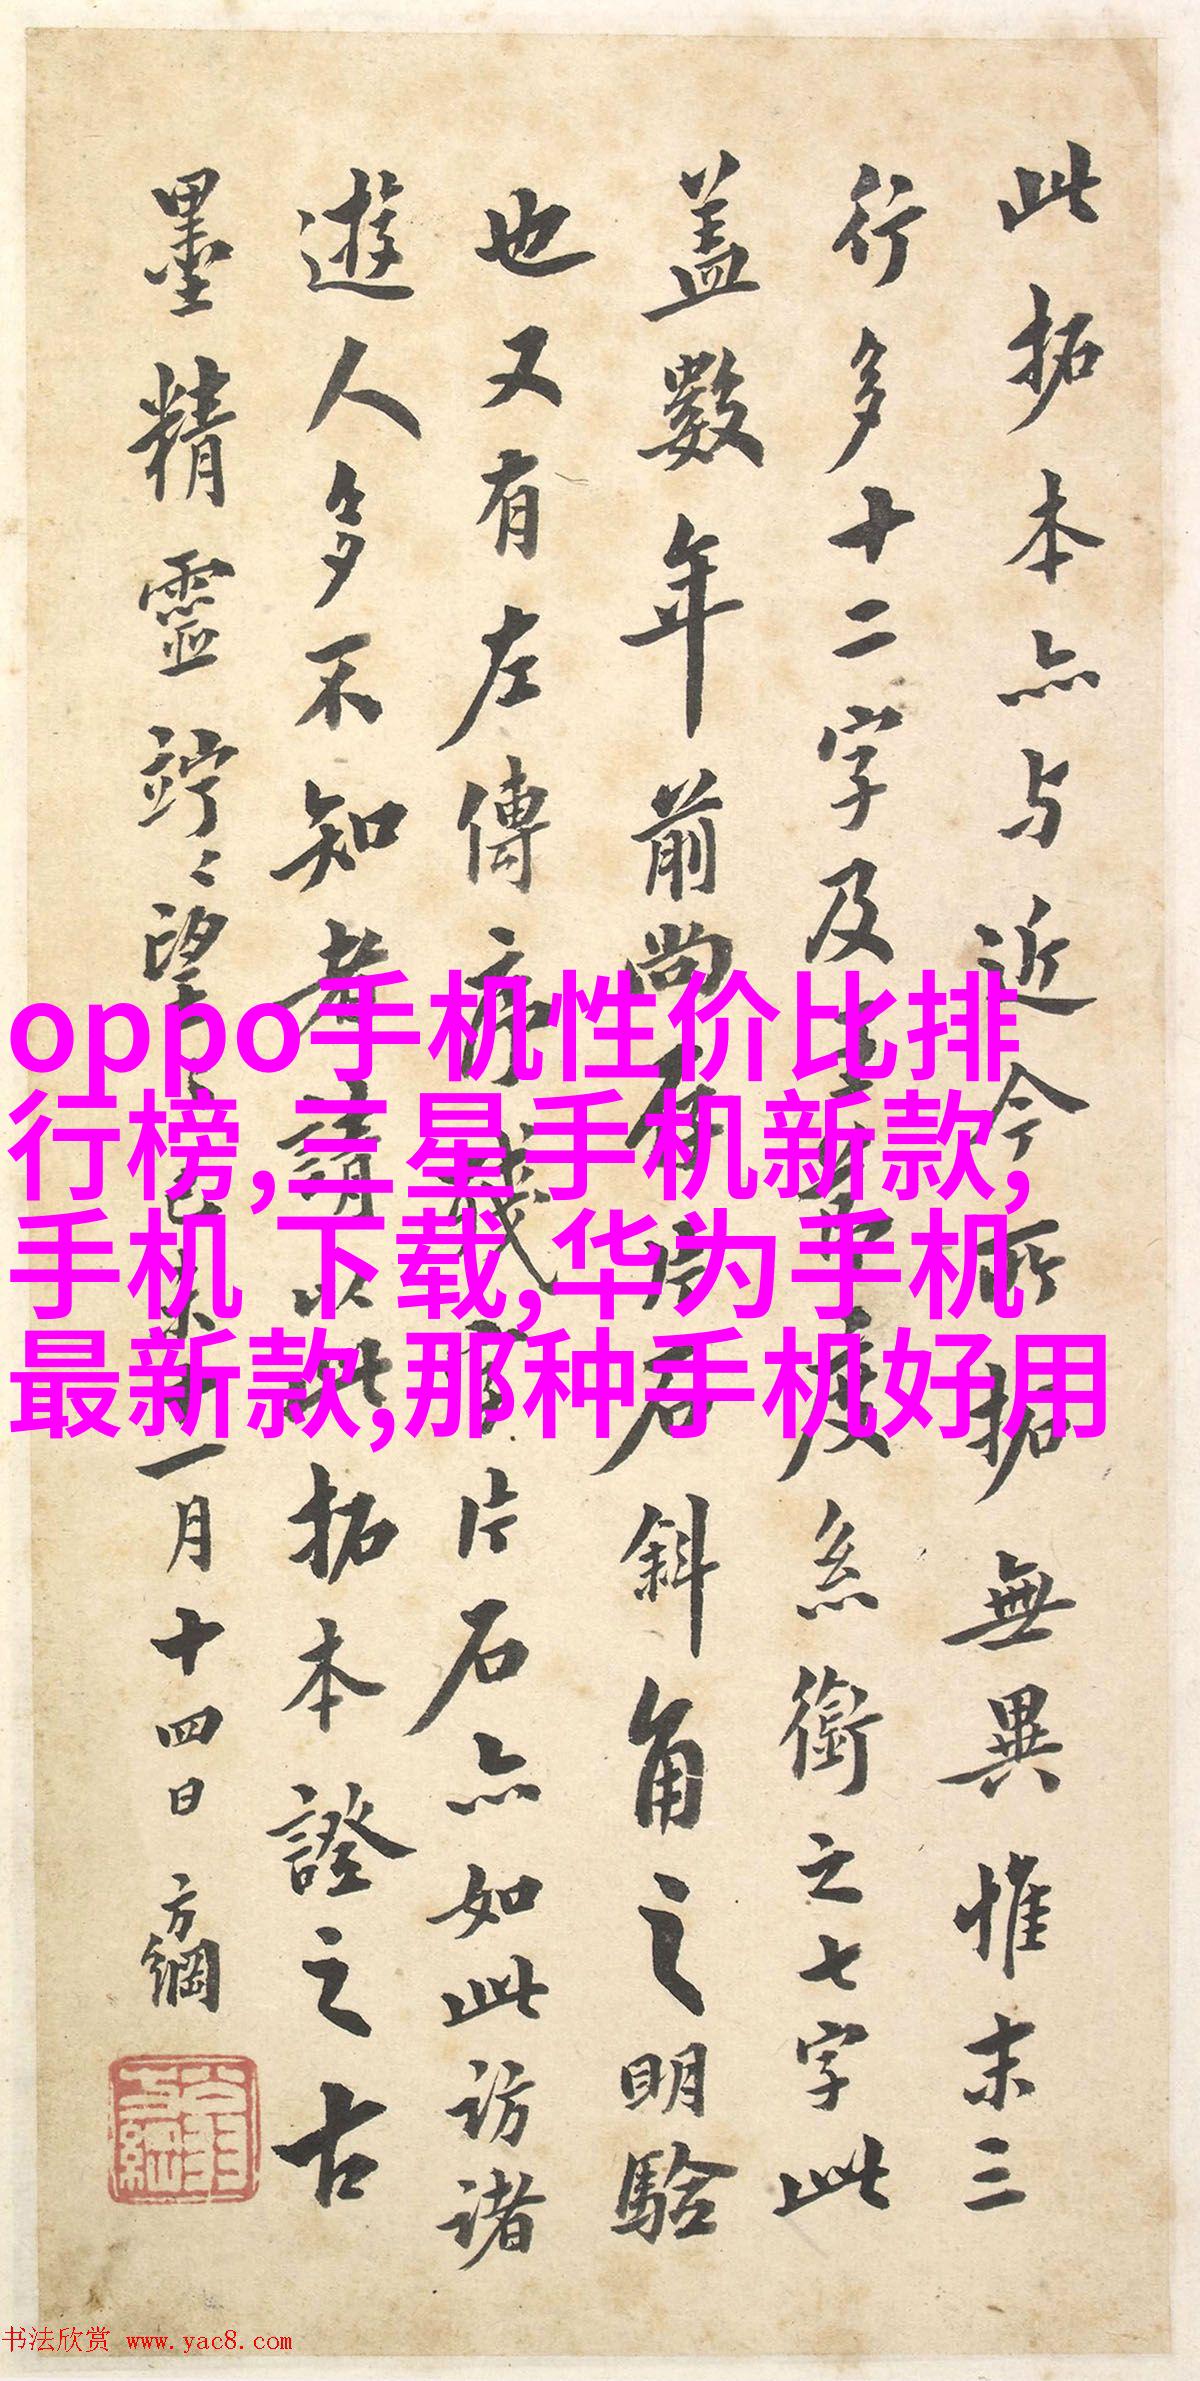 此拓本亦与近今所拓無異惟末三
行多十二字及度系銜之七字此
蓋數年前尚存片石斜角之明驗
也又有左傳序殘字片石亦如此訪諸
遊人多不知者請以此拓本證之古
墨精靈竚〻望己未一月十四日 方綱
oppo手机性价比排
行榜,三星手机新款,
手机 下载,华为手机
最新款,那种手机好用
书法欣赏 www.yac8.com